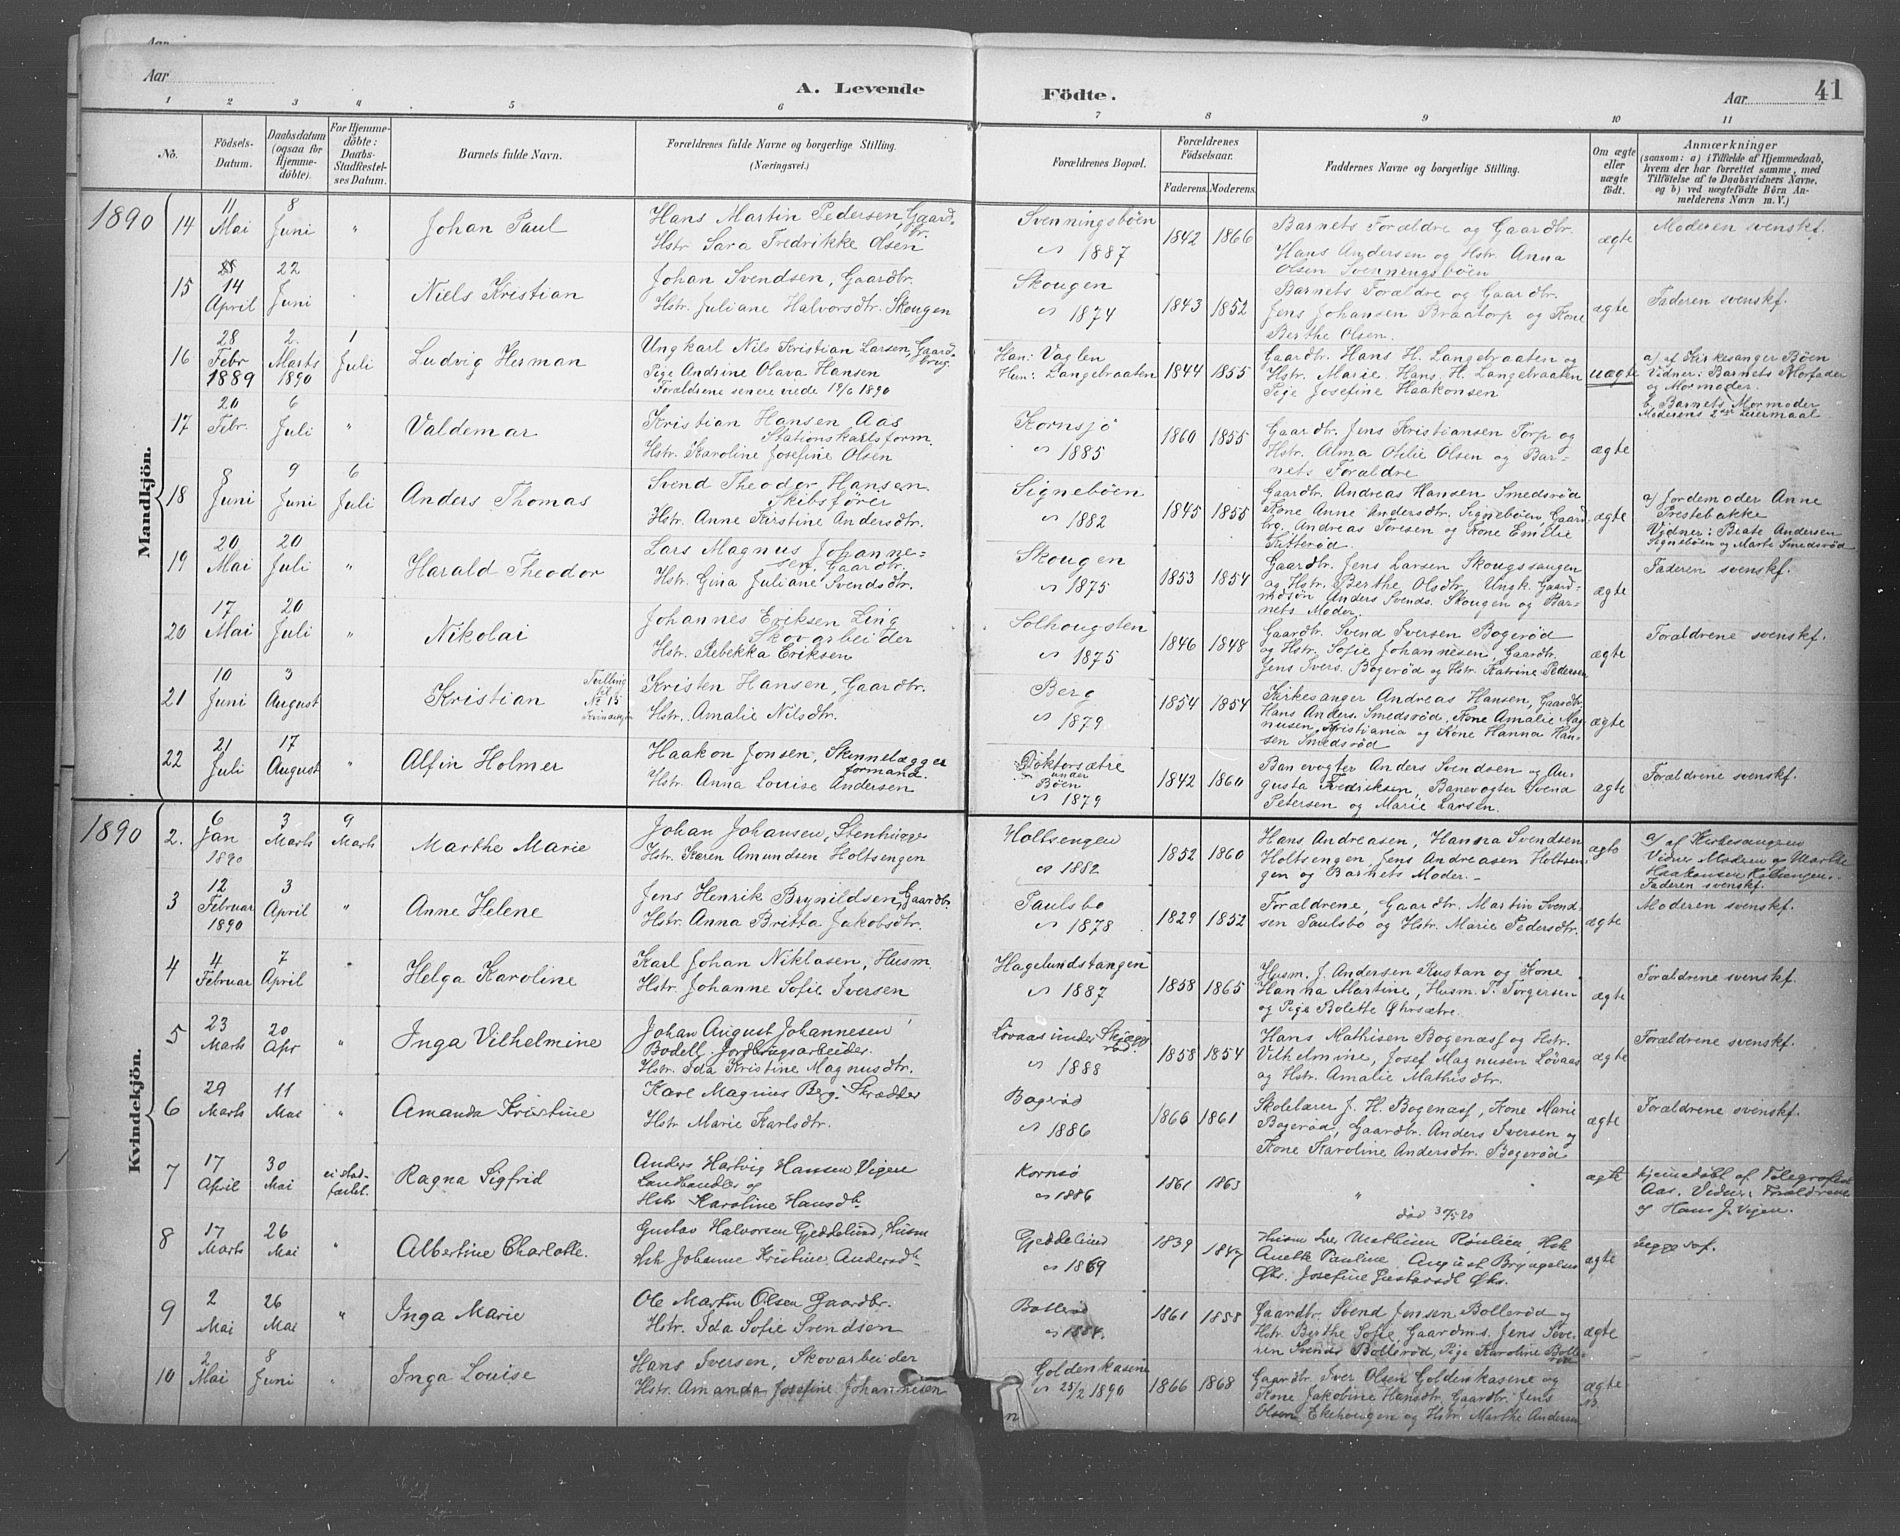 Aar
A. Levende Födte.
Aar
41
1 2 3 4 5 6 7 8 9 10 11
No.
Födsels-Datum.
Daabsdatum (ogsaa for Hjemme-döbte).
For Hjemme-döbte: Daabs-Stadfæstel-ses Datum.
Barnets fulde Navn.
Forældrenes fulde Navne og borgerlige Stilling. (Næringsvei.)
Forældrenes Bopæl.
Forældrenes Födselsaar.
Faderens. Moderens.
Faddernes Navne og borgerlige Stilling.
Om ægte eller uægte födt.
Anmærkninger
(saasom: a) i Tilfælde af Hjemmedaab, hvem der har forrettet samme, med Tilföielse af to Daabsvidners Navne, og b) ved uægtefödte Börn An-melderens Navn m. V.)
Mandkjön.
1890
14 11 Mai 8 Juni " Johan Paul
Hans Martin Pedersen, Gaardbr.
Hstr Sara Fredrikke Olsen
Svenningsbøen
1887
1842 1866
Barnets Forældre og Gaardbr.
Hans Andersen og Hstr. Anna
Olsen Svenningsbøen
ægte
Moderen svenskf.
15 14 April 22 Juni Niels Kristian
Johan Svendsen, Gaardbr.
Hstr. Juliane Halvorsdtr. Skougen
Skougen
1874
1843 1852
Barnets Forældre og Gaardbr.
Jens Johansen Braatorp og Kone
Berthe Olsen.
ægte
Faderen svenskf.
16 28 Febr 1889 2. Marts 1890 1 Juli Ludvig Herman
Ungkarl Nils Kristian Larsen, Gaardbrug.
Pige Andrine Olava Hansen
Forældrene senere viede 19/6 1890
Han: Vaglen
Hun: Langebraaten
1844 1855
Gaardbr. Hans H. Langebraaten og
Hstr. Marie, Hans. H. Langebraaten
Pige Josefine Haakonsen
uægte
a) af Kirkesanger Bøen
Vidner: Barnets Morfader
og Mormoder.
b. Barnets Mormoder
Moderens 2det Leiermaal
17 20 Febr. 6 Juli " Valdemar
Kristian Hansen Aas
Stationskarlsform.
Hstr. Karoline Josefine Olsen
Kornsjø
1885
1860 1855
Gaardbr. Jens Kristiansen Torp og
Hstr. Alma Otilie Olsen og Bar-
nets Forældre
ægte
18 8 Juni 9 Juni 6 Juli Anders Thomas
Svend Theodor Hansen
Skibsfører
Hstr. Anne Kirstine Andersdtr.
Signebøen
1882
1845 1855
Gaardbr. Andreas Hansen Smedsrød
Kone Anne Andersdtr. Signebøen, Gaard-
brg. Andreas Toresen og Kone Emilie
Kitterød.
ægte
a/ Jordemoder Anne
Prestebakke
Vidner: Beate Andersen
Signebøen og Marte Smedsrød
19 20 Mai 20 Juli " Harald Theodor
Lars Magnus Johanne-
sen, Gaardbr.
Hstr. Gina Juliane Svendsdtr.
Skougen
1875
1853 1854
Gaardbr. Jens Larsen Skougssaugen
og Hstr. Berthe Olsdtr. Ungk. Gaard-
mdsøn Anders Svends. Skougen og Bar-
nets Moder.
ægte
Faderen svenskf.
20 17 Mai 20 Juli " Nikolai
Johannes Eriksen Ling
Skovarbeider
Hstr. Rebekka Eriksen
Solhougsten
1875
1846 1848
Gaardbr. Svend Iversen Bogerød
og Hstr. Sofie Johannesen, Gaardbr.
Jens Ivers. Bogerød og Hstr. Katrine Pedersen
ægte
Forældrene svenskf.
21 10 Juni 3 August Kristian
Tvilling til No 15
Kristen Hansen, Gaardbr.
Hstr. Amalie Nilsdtr.
Berg
1879
1854 1854
Kirkesanger Andreas Hansen, Gaardbr.
Hans Anders. Smedsrød, Kone Amalie Mag-
nusen, Kristiania og Kone Hanna Han-
sen Smedsrød
ægte
22 21 Juli 17 August " Alfin Holmer
Haakon Jonsen, Skinnelægger
formand.
Hstr. Anna Louise Andersen
Doktorsætre
under
Bøen
1879
1842 1860
Banevogter Anders Svendsen og Au-
gusta Fredriksen, Banevogter Svend
Petersen og Marie Larsen.
ægte
Forældrene svenskf.
Kvindekjön.
1890
2. 6 Jan 1890 3 Marts 9 Marts Marthe Marie
Johan Johansen, Stenhugger
Hstr. Karen Amundsen Holtsengen
Holtsengen
1882
1852 1860
Hans Andreasen, Hanna Svendsen
Holtsengen, Jens Andreasen Holtsen-
gen og Barnets Moder.
ægte
a/ af Kirkesangeren
Vidner Moderen og Marthe
Haakonsen Holtsengen.
Faderen svenskf.
3 12 Februar 1890 3 April " Anne Helene
Jens Henrik Brynildsen, Gaardbr.
Hstr. Anna Britta Jakobsdtr.
Paulsbo
1878
1829 1852
Forældrene, Gaardbr. Martin Svend-
sen Paulsbo og Hstr. Marie Pedersdtr.
ægte
Moderen svenskf.
4 4 Februar 7 April " Helga Karoline
Karl Johan Niklasen, Husm
Hstr. Johanne Sofie Iversen
Hagelundstangen
1887
1858 1865
Husm. J. Andersen Rustan og Kone
Hanna Martine, Husm. T. Torgersen
og Pige Bolette Øhrsætre.
ægte
Forældrene svenskf.
5 23 Marts 20 Apr " Inga Vilhelmine
Johan August Johannesen
Bodell. Jordbrugsarbeider.
Hstr. Ida Kristine Magnusdtr.
Løvaas under
1888
1858 1854
Hans Mathisen Bogenæsf og Hstr.
Vilhelmine, Josef Magnusen Løvaas
og Hstr. Amalie Mathisdtr.
ægte
Forældrene svenskf.
6 29 Marts 11 Mai " Amanda Kristine
Karl Magnus Berg. Skrædder
Hstr Marie Karlsdtr.
Bogerød
1886
1866 1861
Skolelærer J. H. Bogenæsf, Kone Marie
Bogerød, Gaardbr. Anders Iversen og
Kone Karoline Andersdtr. Bogerød
ægte
Forældrene svenskf.
7 17 April 30 Mai ei stad-fæstet. Ragna Sigfrid
Anders Hartvig Hansen Vigen
Landhandler og
Hstr Karoline Hansdtr
Kornsø
1886
1861 1863
"
død 30/5 90
ægte
hjemdøbt af Telegrafist
Aas. Vidner: Forældrene
og Hans J. Vigen.
8 17 Marts 26 Mai " Albertine Charlotte.
Gustav Halvorsen Gjeddelund, Husm
Hstr Johanne Kristine Andersdtr
Gjeddelund
1869
1839 1847
Husm Iver Mathisen Røulien, Hstr
Anette Pauline, August Bryngelsen
Øhr. Josefine Gustavsdtr Øhr.
ægte
begge svf.
9 2 Mai 26 Mai " Inga Marie
Ole Martin Olsen Gaardbr.
Hstr. Ida Sofie Svendsen
Bollerød
1861 1858
Gaardbr. Svend Jensen Bollerød og
Hstr. Berthe Sofie, Gaardm.s. Jens Seve-
rin Svends Bollerød, Pige Karoline
ægte
10 2 Mai 8 Juni " Inga Louise
Hans Iversen, Skovarbeider
Hstr. Amanda Josefine Johannesen
Goldenkasene
25/2 1890
1866 1868
Gaardbr. Iver Olsen Goldenkasene og
Kone Jakobine Hansdtr, Gaardbr. Jens
Olsen Ekehougen og Hstr. Marthe Andersen
ægte